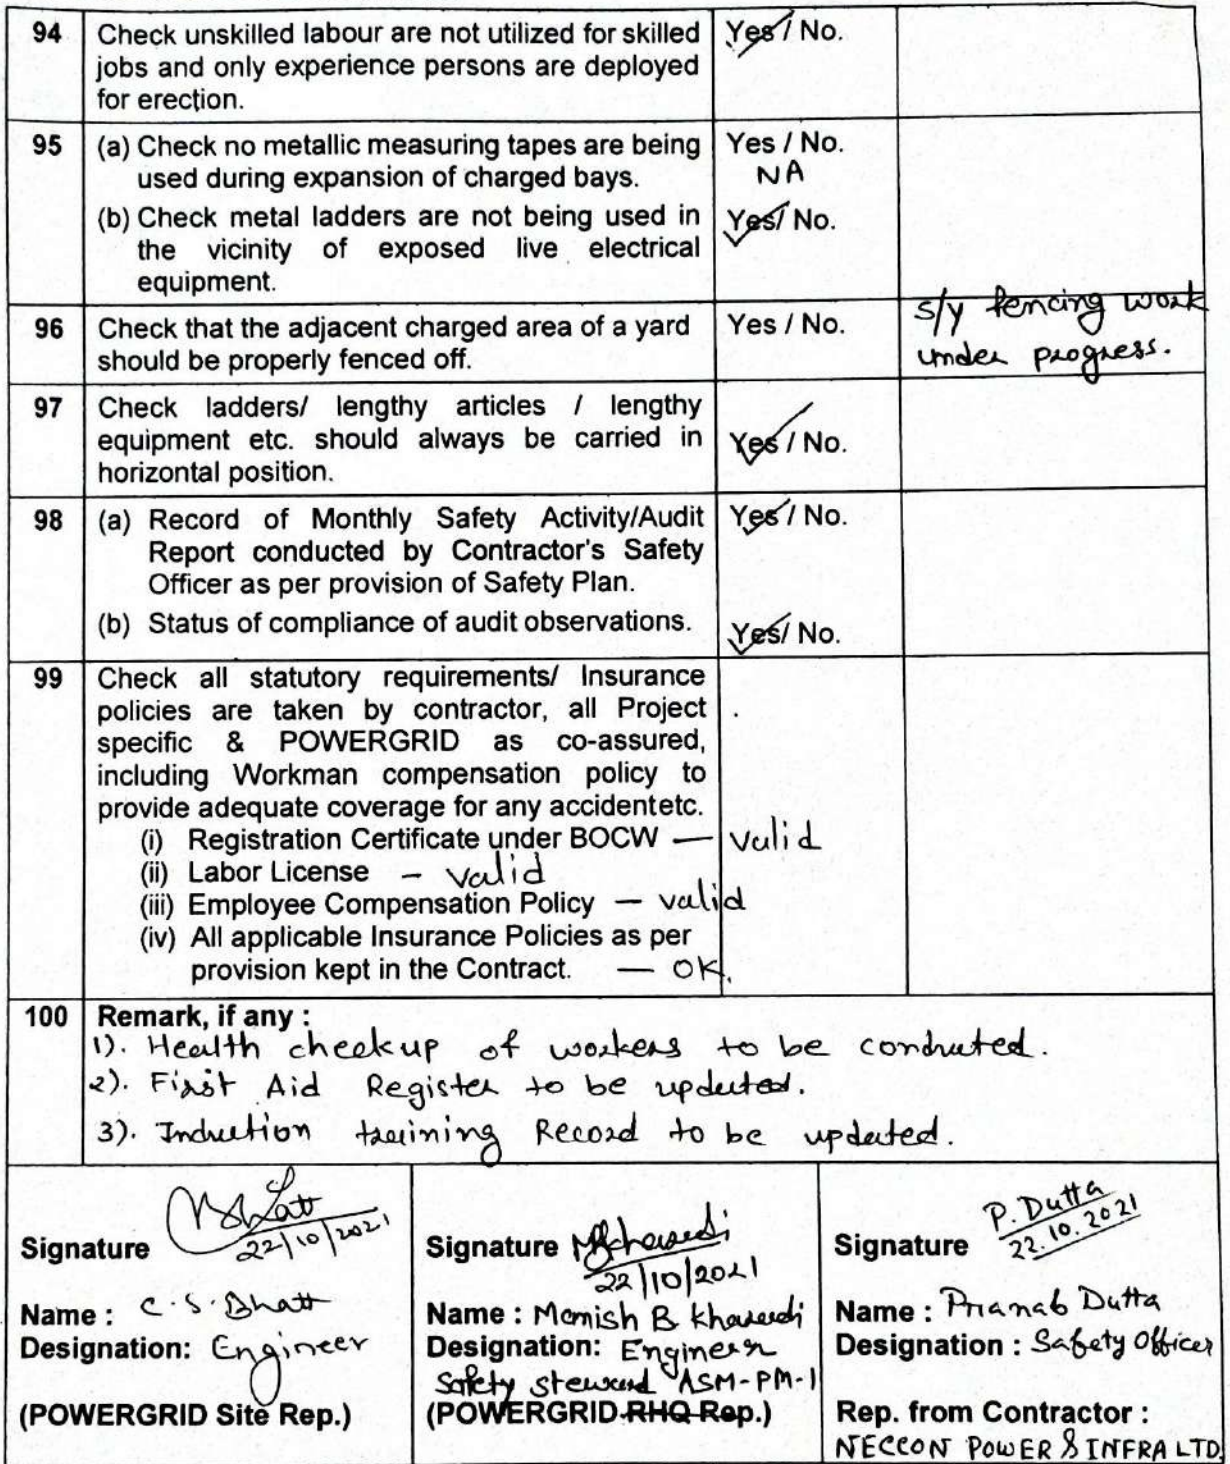 94 Check unskilled labour are not utilized for skilled Yes / No.
jobs and only experience persons are deployed
for erection.
95 (a) Check no metallic measuring tapes are being Yes / No.
used during expansion of charged bays. NA
(b) Check metal ladders are not being used in Yes/ No.
the vicinity of exposed live electrical
equipment.
96 Check that the adjacent charged area of a yard Yes / No. s/y fencing work
should be properly fenced off. under progress.
97 Check ladders/ lengthy articles / lengthy
equipment etc. should always be carried in Yes / No.
horizontal position.
98 (a) Record of Monthly Safety Activity/Audit Yes / No.
Report conducted by Contractor's Safety
Officer as per provision of Safety Plan.
(b) Status of compliance of audit observations. Yes/ No.
99 Check all statutory requirements/ Insurance
policies are taken by contractor, all Project
specific & POWERGRID as co-assured,
including Workman compensation policy to
provide adequate coverage for any accidentetc.
(i) Registration Certificate under BOCW — Valid
(ii) Labor License – valid
(iii) Employee Compensation Policy — valid
(iv) All applicable Insurance Policies as per
provision kept in the Contract. — OK.
100 Remark, if any :
1). Health checkup of workers to be conducted.
2). First Aid Register to be updated.
3). Induction training Record to be updated.
Signature 22/10/2021
Name : C.S. Bhatt
Designation: Engineer
(POWERGRID Site Rep.)
Signature 22/10/2021
Name : Manish B
Designation: Engineer
Safety steward ASM-PM-1
(POWERGRID RHQ Rep.)
Signature P. Dutta
22.10.2021
Name : Pranab Dutta
Designation : Safety Officer
Rep. from Contractor :
NECCON POWER & INFRA LTD